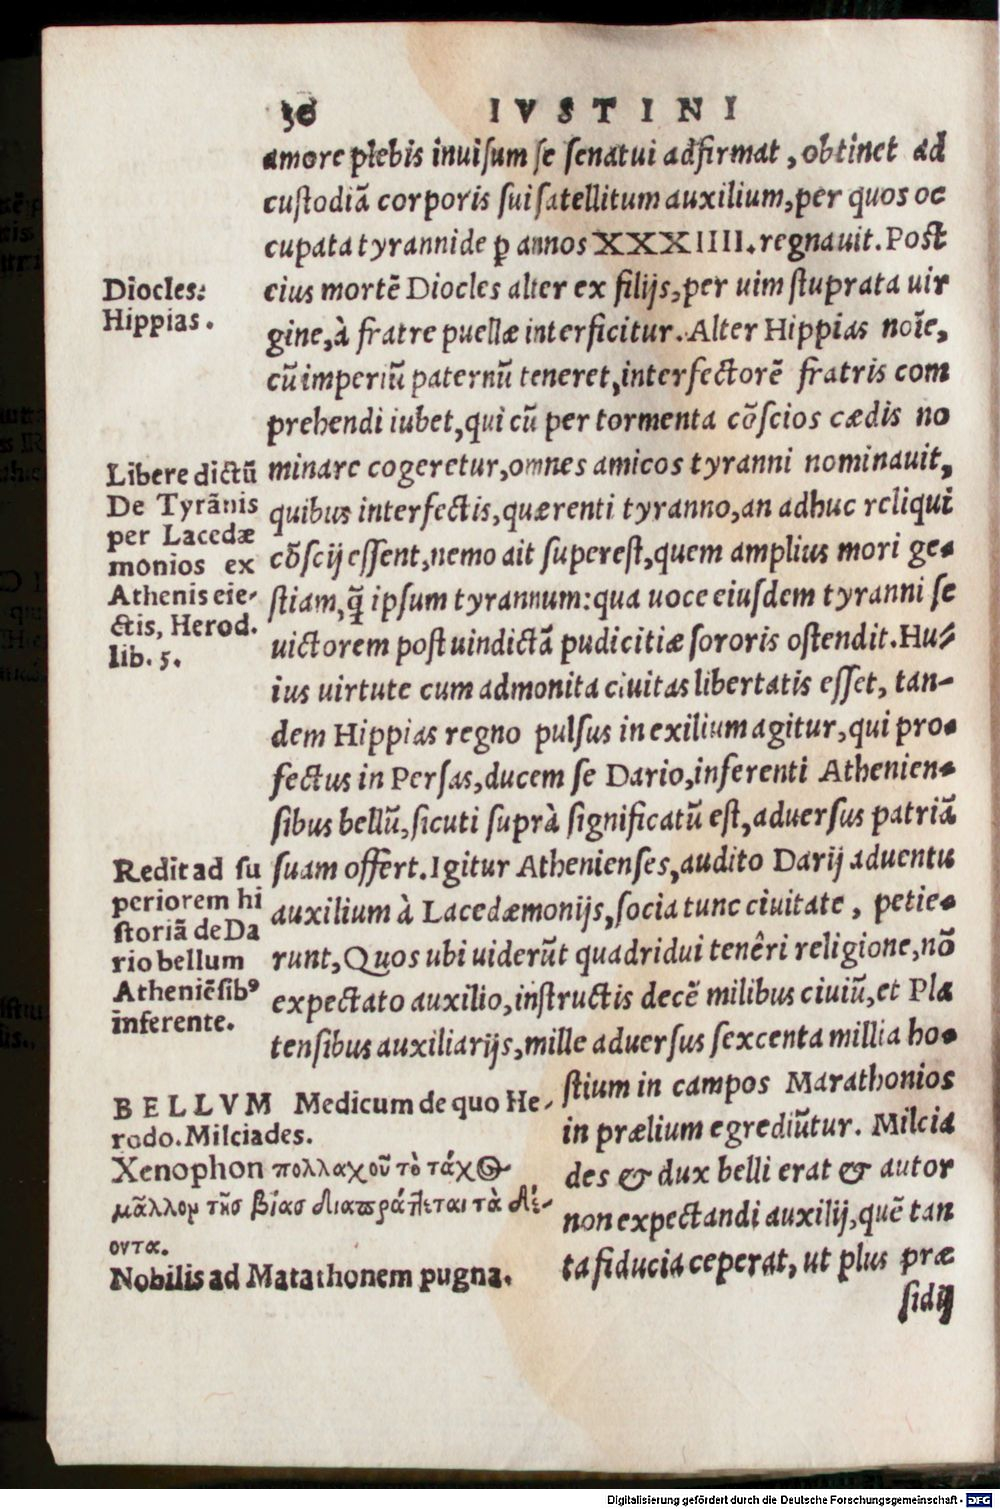 30 IVSTINI
amore plebis inuisum se senatui adfirmat, obtinet ad
custodiã corporis sui satellitum auxilium, per quos oc
cupata tyrannide ꝑ annos XXXIIII. regnauit. Post
eius mortẽ Diocles alter ex filijs, per uim stuprata uir
gine, à fratre puellæ interficitur. Alter Hippias noĩe,
cũ imperiũ paternũ teneret, interfectorẽ fratris com
prehendi iubet, qui cũ per tormenta cõscios cædis no
minare cogeretur, omnes amicos tyranni nominauit,
quibus interfectis, quærenti tyranno, an adhuc reliqui
cõscij essent, nemo ait superest, quem amplius mori ge-
stiam, q̃ ipsum tyrannum: qua uoce eiusdem tyranni se
uictorem post uindictã pudicitiæ sororis ostendit. Hu-
ius uirtute cum admonita ciuitas libertatis esset, tan-
dem Hippias regno pulsus in exilium agitur, qui pro-
fectus in Persas, ducem se Dario, inferenti Athenien-
sibus bellũ, sicuti suprà significatũ est, aduersus patriã
suam offert. Igitur Athenienses, audito Darij aduentu
auxilium à Lacedæmonijs, socia tunc ciuitate, petie-
runt, Quos ubi uiderũt quadridui tenêri religione, nõ
expectato auxilio, instructis decẽ milibus ciuiũ, et Pla
tensibus auxiliarijs, mille aduersus sexcenta millia ho-
stium in campos Marathonios
in prælium egrediũtur. Milcia
des & dux belli erat & autor
non expectandi auxilij, quẽ tan
ta fiducia ceperat, ut plus præ
sidij
Diocles.
Hippias.
Libere dictũ
De Tyrãnis
per Lacedæ
monios ex
Athenis eie-
ctis, Herod.
lib. 5.
Redit ad su
periorem hi
storiã de Da
rio bellum
Atheniẽsibꝰ
inferente.
BELLVM Medicum de quo He-
rodo. Milciades.
Xenophon πολλαχοῦ τὸ τάχος
μᾶλλον τῆς βίας διαπράττεται τὰ δέ-
οντα.
Nobilis ad Matathonem pugna.
Digitalisierung gefördert durch die Deutsche Forschungsgemeinschaft - DFG